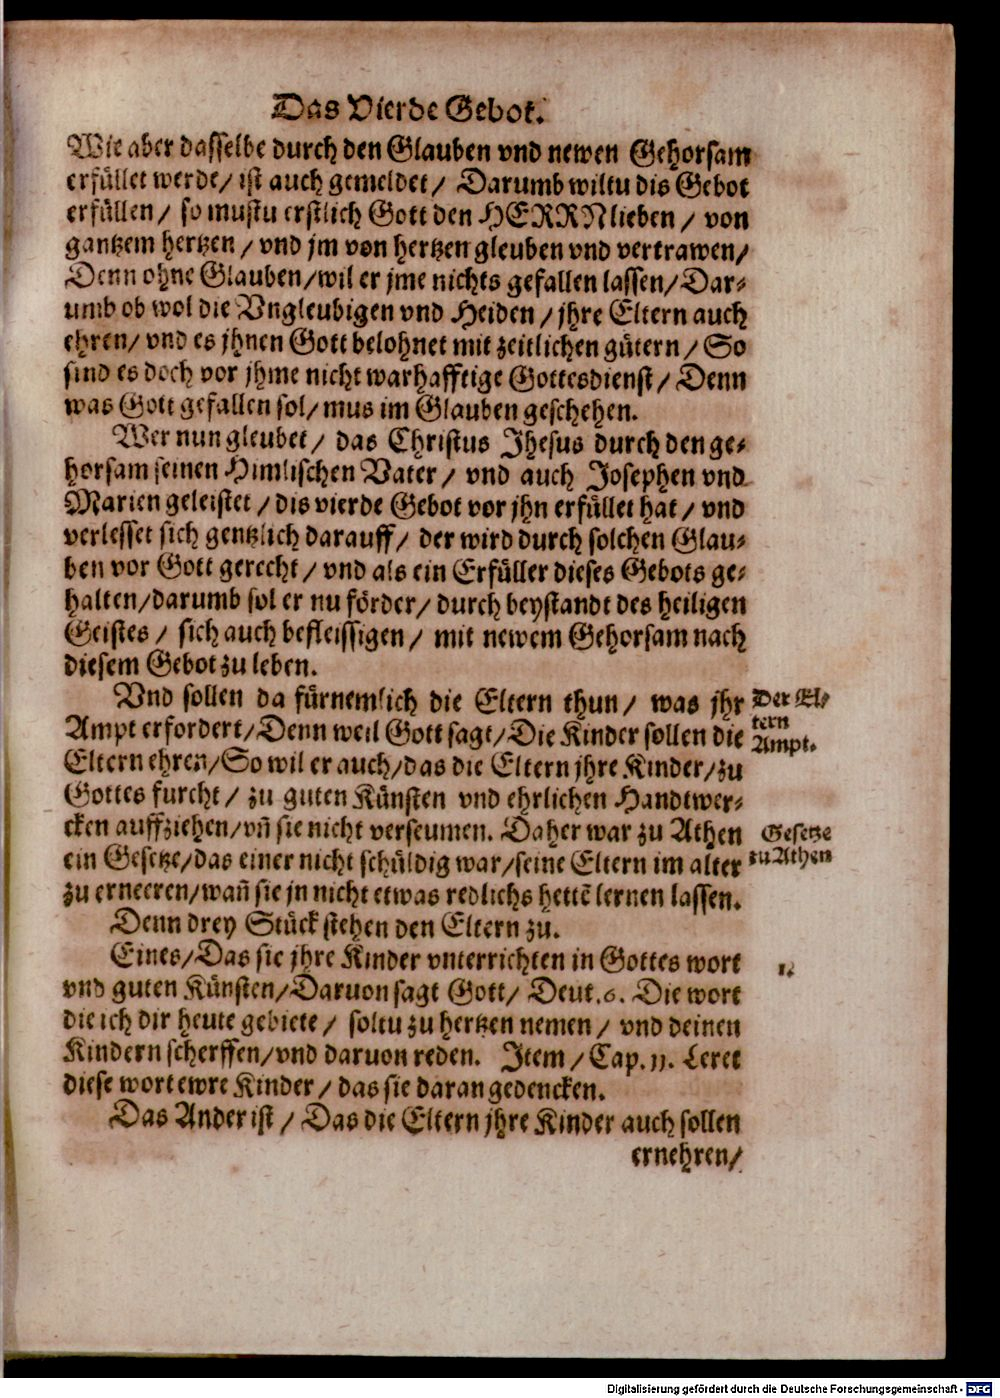 Das Vierde Gebot.
Wie aber dasselbe durch den Glauben vnd newen Gehorsam
erfüllet werde/ ist auch gemeldet/ Darumb wiltu dis Gebot
erfüllen/ so mustu erstlich Gott den HERRN lieben/ von
gantzem hertzen/ vnd jm von hertzen gleuben vnd vertrawen/
Denn ohne Glauben/wil er jme nichts gefallen lassen/Dar-
umb ob wol die Vngleubigen vnd Heiden/jhre Eltern auch
ehren/ vnd es jhnen Gott belohnet mit zeitlichen gütern/ So
sind es doch vor jhme nicht warhafftige Gottesdienst/ Denn
was Gott gefallen sol/mus im Glauben geschehen.
Wer nun gleubet/ das Christus Jhesus durch den ge-
horsam seinen Himlischen Vater/ vnd auch Josephen vnd
Marien geleistet/dis vierde Gebot vor jhn erfüllet hat/ vnd
verlesset sich gentzlich darauff/ der wird durch solchen Glau-
ben vor Gott gerecht/ vnd als ein Erfüller dieses Gebots ge-
halten/darumb sol er nu förder/ durch beystandt des heiligen
Geistes/ sich auch befleissigen/ mit newem Gehorsam nach
diesem Gebot zu leben.
Vnd sollen da fürnemlich die Eltern thun/ was jhr
Der El-
tern
Ampt.
Ampt erfordert/Denn weil Gott sagt/Die Kinder sollen die
Eltern ehren/So wil er auch/das die Eltern jhre Kinder/zu
Gottes furcht/ zu guten Künsten vnd ehrlichen Handtwer-
cken auffziehen/vñ sie nicht verseumen. Daher war zu Athen
Gesetze
zu Athen
ein Gesetze/das einer nicht schüldig war/seine Eltern im alter
zu erneeren/wañ sie jn nicht etwas redlichs hettē lernen lassen.
Denn drey Stück stehen den Eltern zu.
Eines/Das sie jhre Kinder vnterrichten in Gottes wort
1.
vnd guten Künsten/Daruon sagt Gott/ Deut.6. Die wort
die ich dir heute gebiete/ soltu zu hertzen nemen/ vnd deinen
Kindern scherffen/vnd daruon reden. Item/Cap.11. Leret
diese wort ewre Kinder/das sie daran gedencken.
Das Ander ist/ Das die Eltern jhre Kinder auch sollen
ernehren/
Digitalisierung gefördert durch die Deutsche Forschungsgemeinschaft - DFG